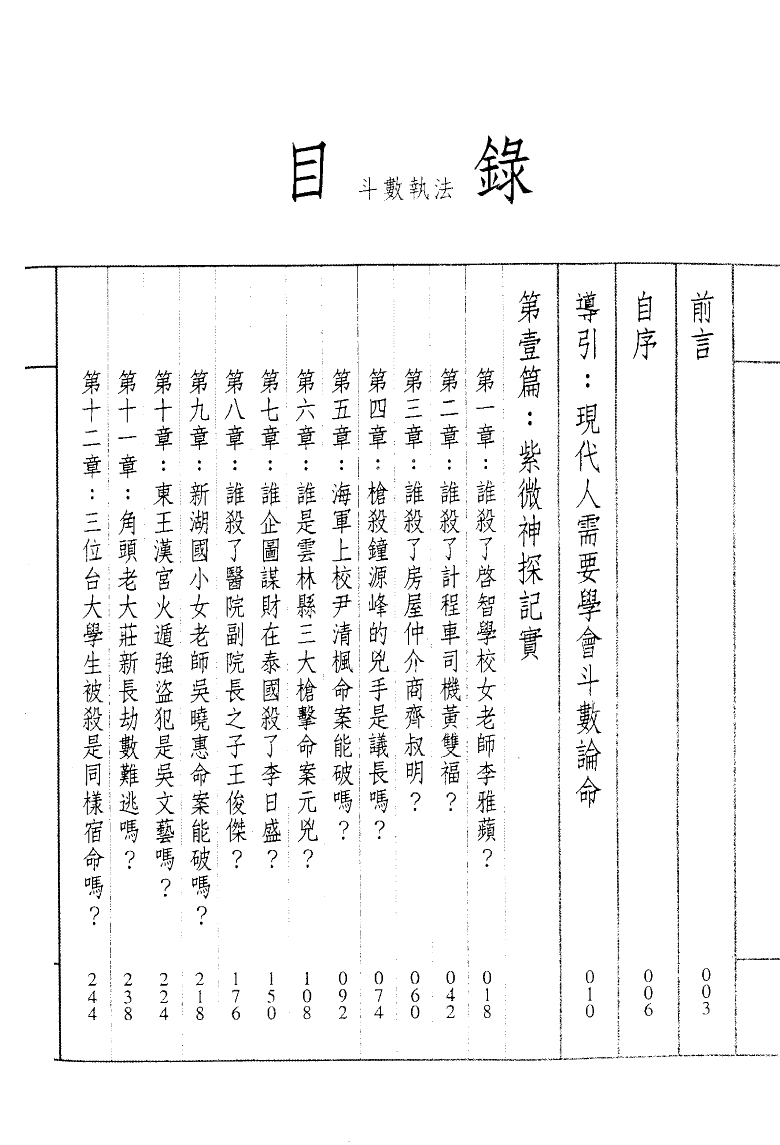 目 斗數執法 錄
前言 003
自序 006
導引：現代人需要學會斗數論命 010
第壹篇：紫微神探記實
第一章：誰殺了啓智學校女老師李雅蘋？ 018
第二章：誰殺了計程車司機黃雙福？ 042
第三章：誰殺了房屋仲介商齊叔明？ 060
第四章：槍殺鐘源峰的兇手是議長嗎？ 074
第五章：海軍上校尹清楓命案能破嗎？ 092
第六章：誰是雲林縣三大槍擊命案元兇？ 108
第七章：誰企圖謀財在泰國殺了李日盛？ 150
第八章：誰殺了醫院副院長之子王俊傑？ 176
第九章：新湖國小女老師吳曉惠命案能破嗎？ 218
第十章：東王漢宮火遁強盜犯是吳文藝嗎？ 224
第十一章：角頭老大莊新長劫數難逃嗎？ 238
第十二章：三位台大學生被殺是同樣宿命嗎？ 244